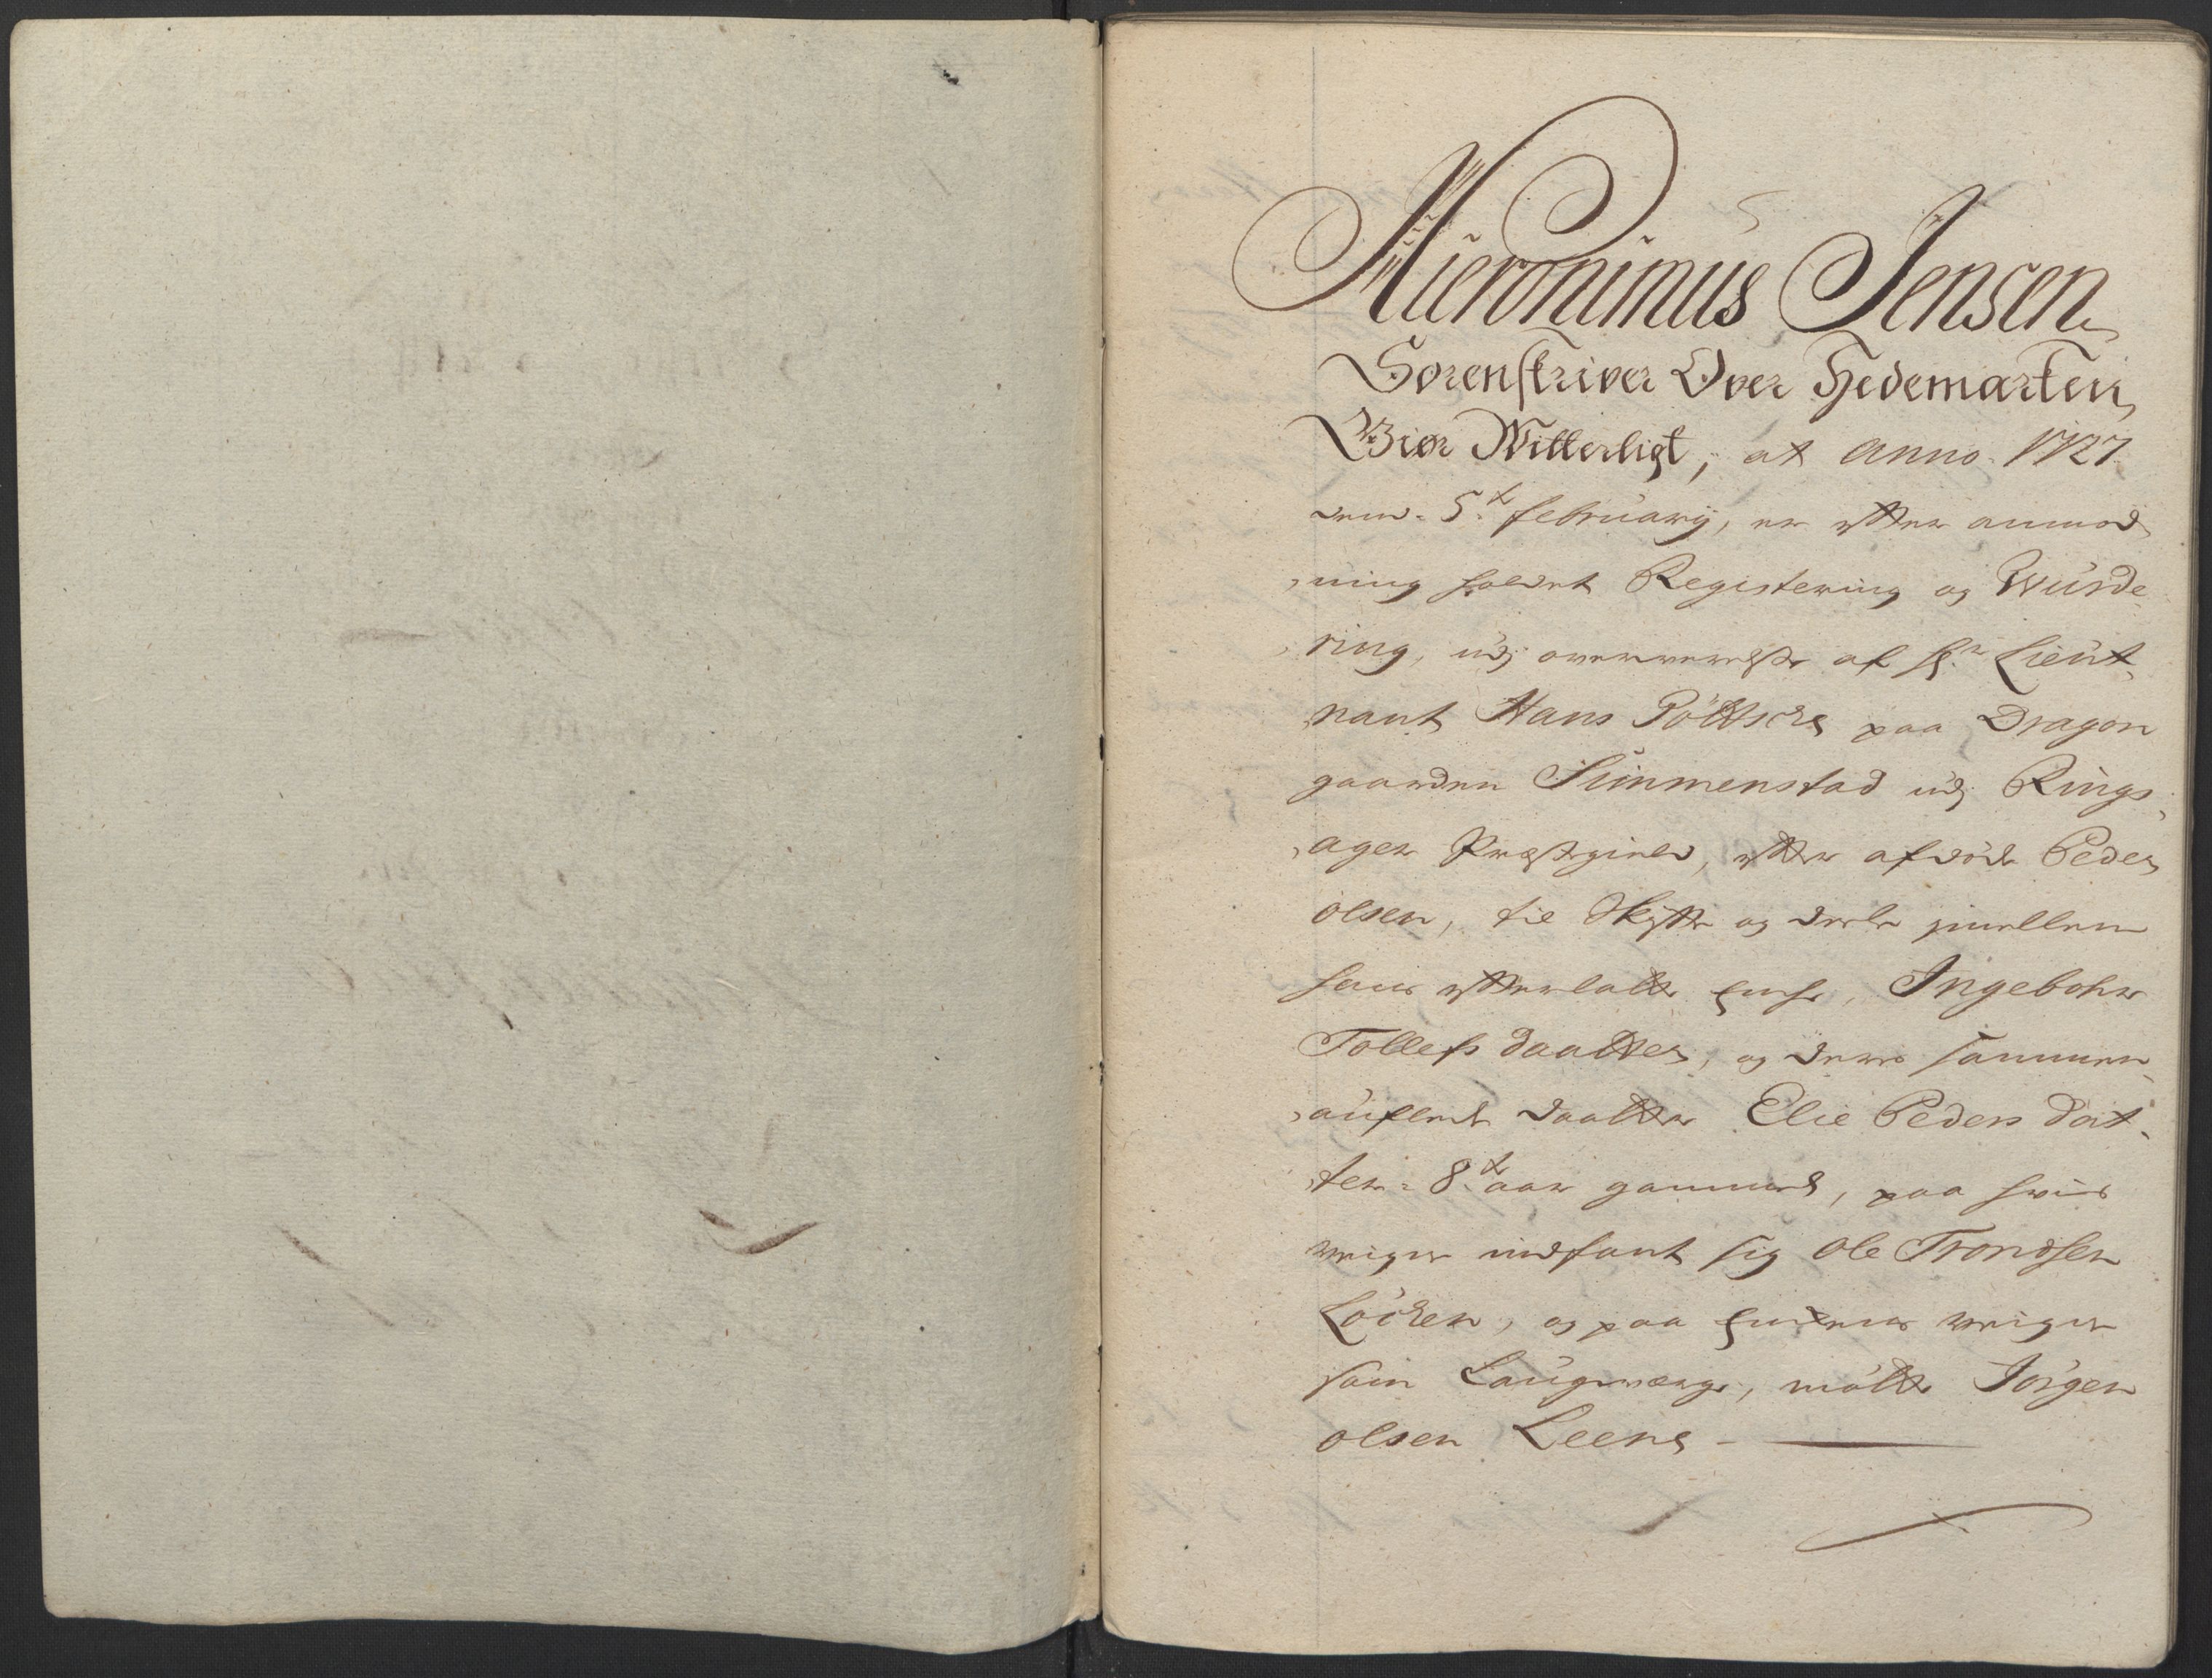 Hieronimus Jensen
Sorenskriver Over Hedemarken,
Giør Witterligt, at Anno 1727
dend 5.t february, er efter anmod,
,ning holdet Registering og Wurde
,ring, udj overværelse af Hr. Lieut,
,nant Hans Pöttsche paa Dragon
gaarden Simmenstad udj Rings,
,ager Præstegield, efter afdöde Peder
olsen, til Skifte og deele imellem
hans efterlatte Enche, Ingebohr
Tollefs daatter, og deres sammen,
,auflede daatter Elie Peders dat,
,ter 8.t aar gammel, paa hvis
veigne indfant sig Ole Trondsen
Löchen, og paa Enchens veigne
som Laugværge, mötte Jörgen
olsen Leene